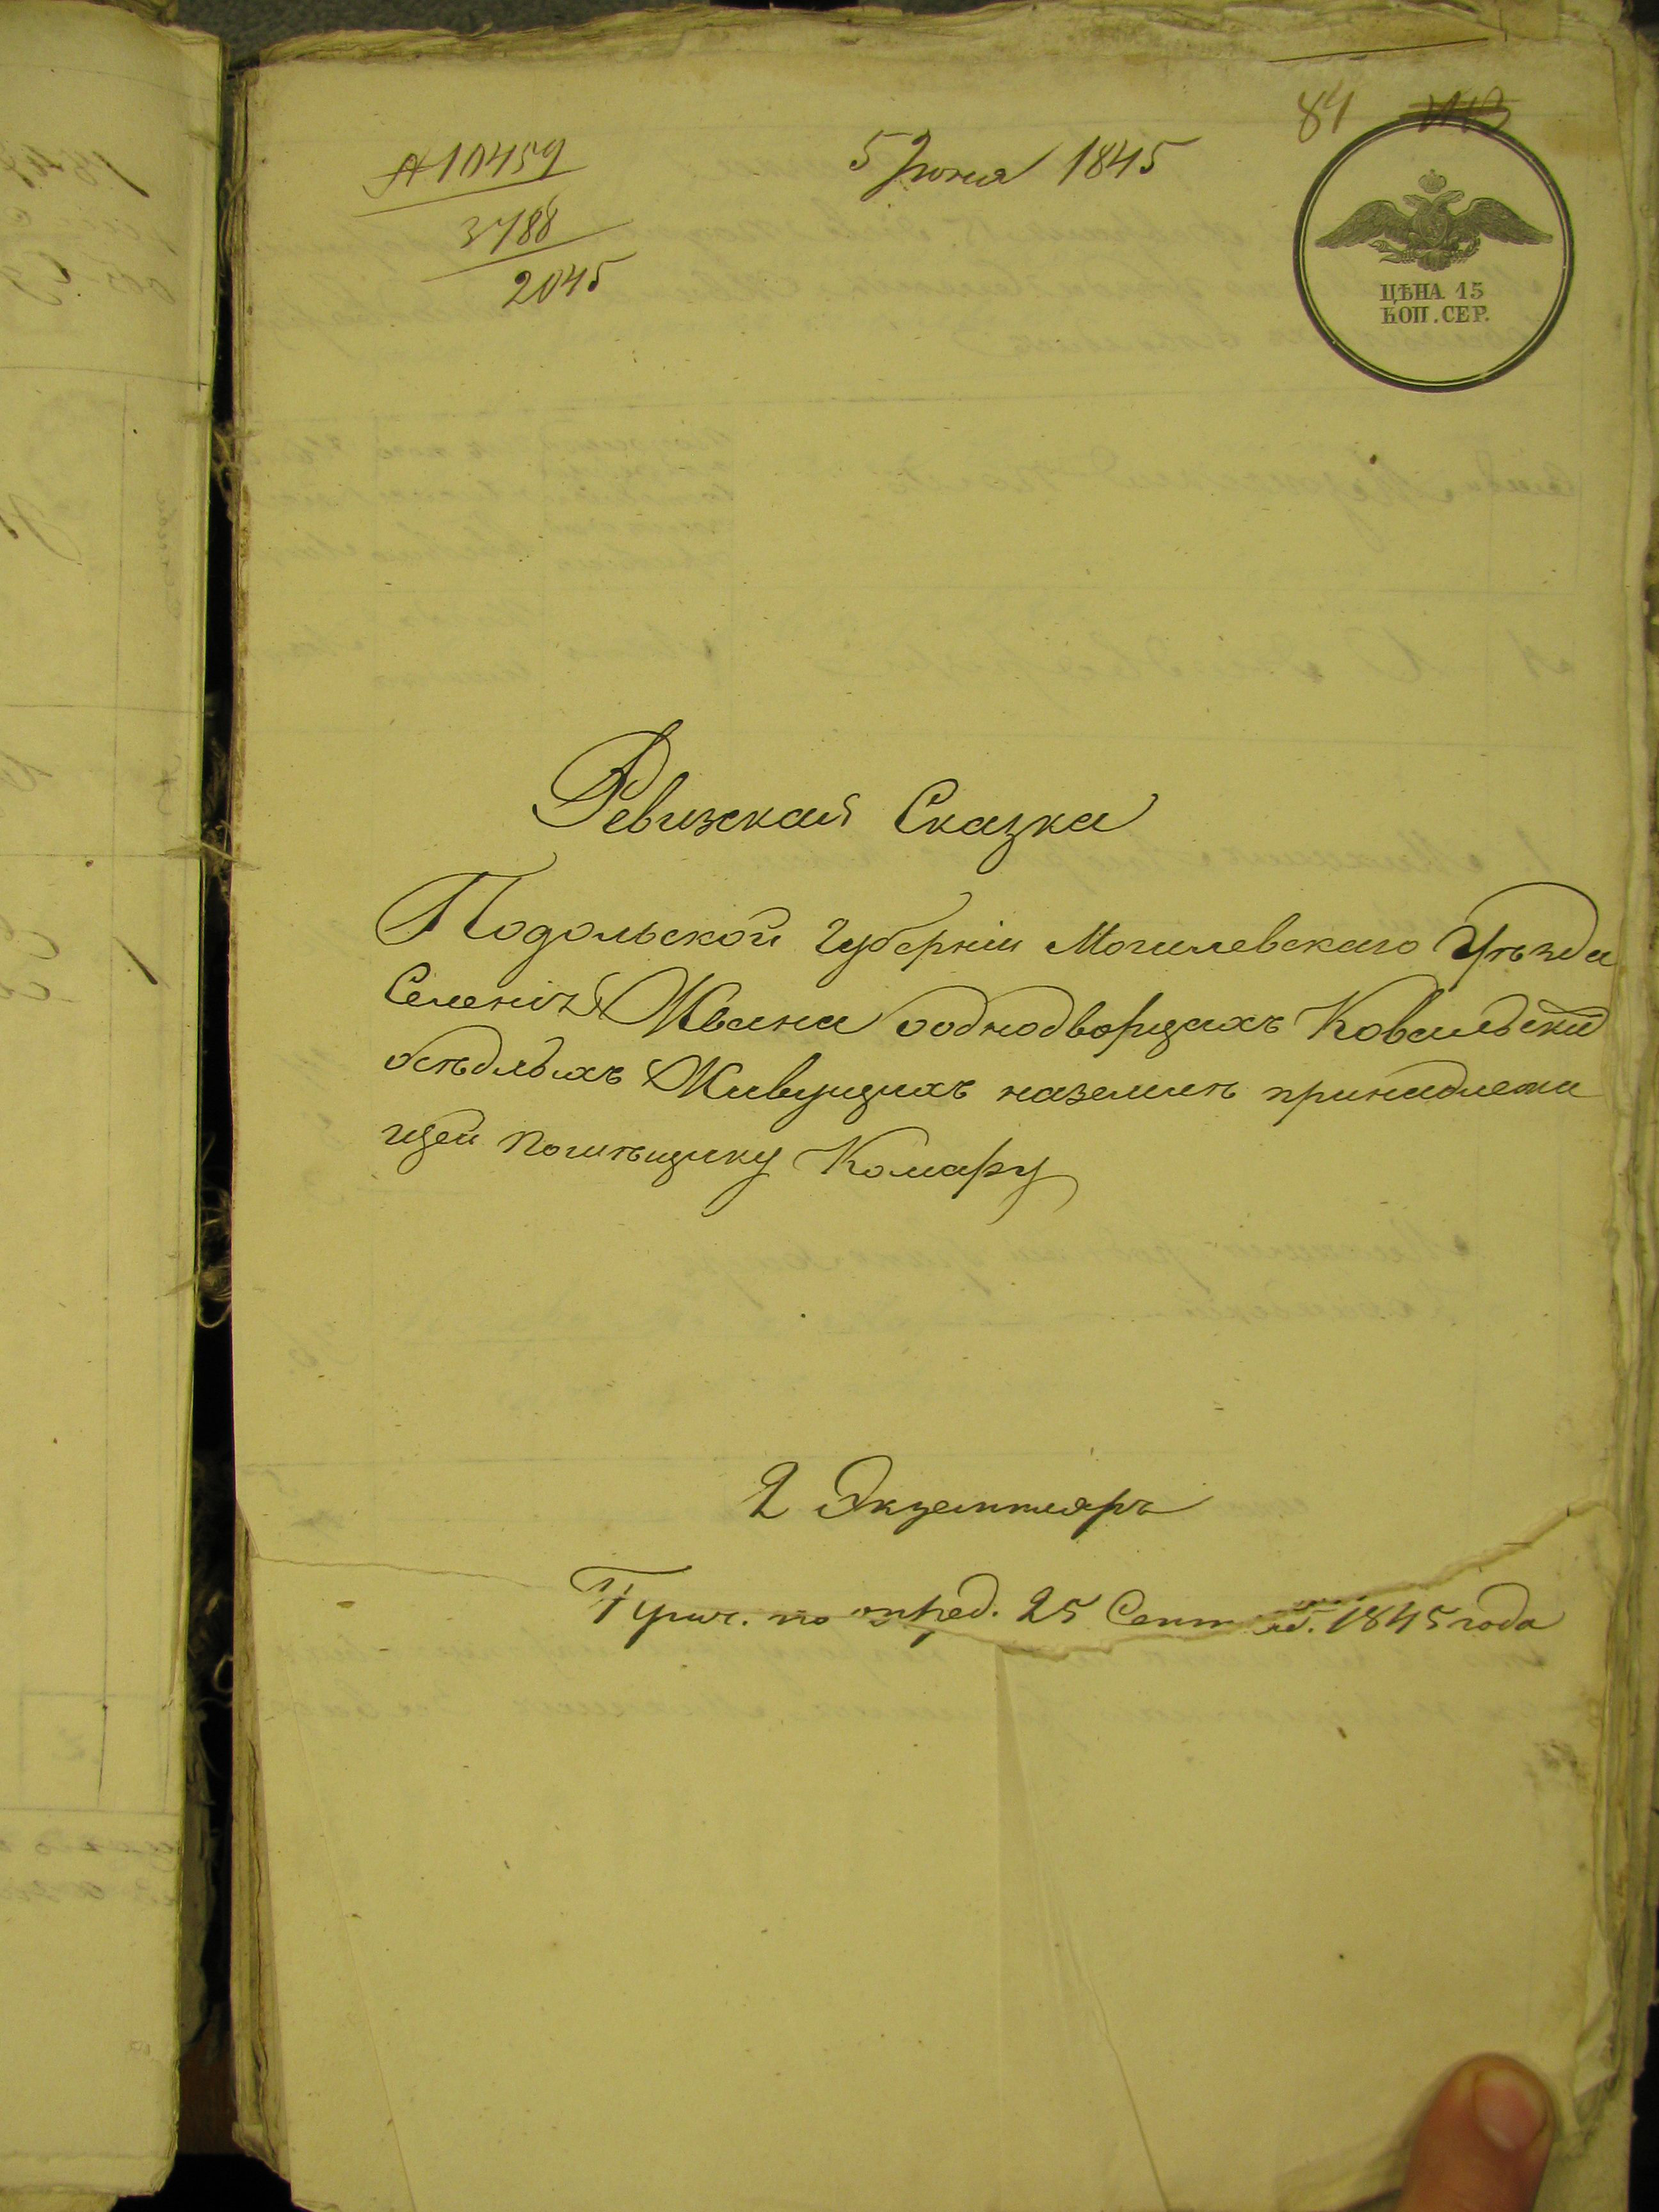 84
№ 10459
3788
2045
5 Июня 1845
ЦѢНА 15
КОП. СЕР.
Ревизская Сказка
Подольской Губерніи Могилевскаго Уѣзда
Селенія Жвана ооднодворцахъ Ковальскій
осѣдлыхъ Живущихъ наземлѣ принадлежа
щей Помѣщику Комару
2 Экземпляръ
по опред. 25 Сент 1845 года